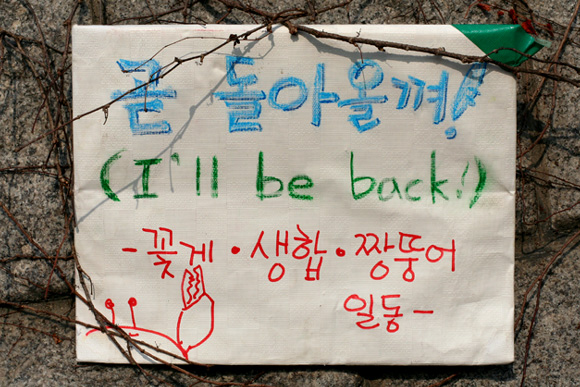 곧 돌아올껴!
(I'll be back!)
-꽃게·생합·짱뚱어
일동-